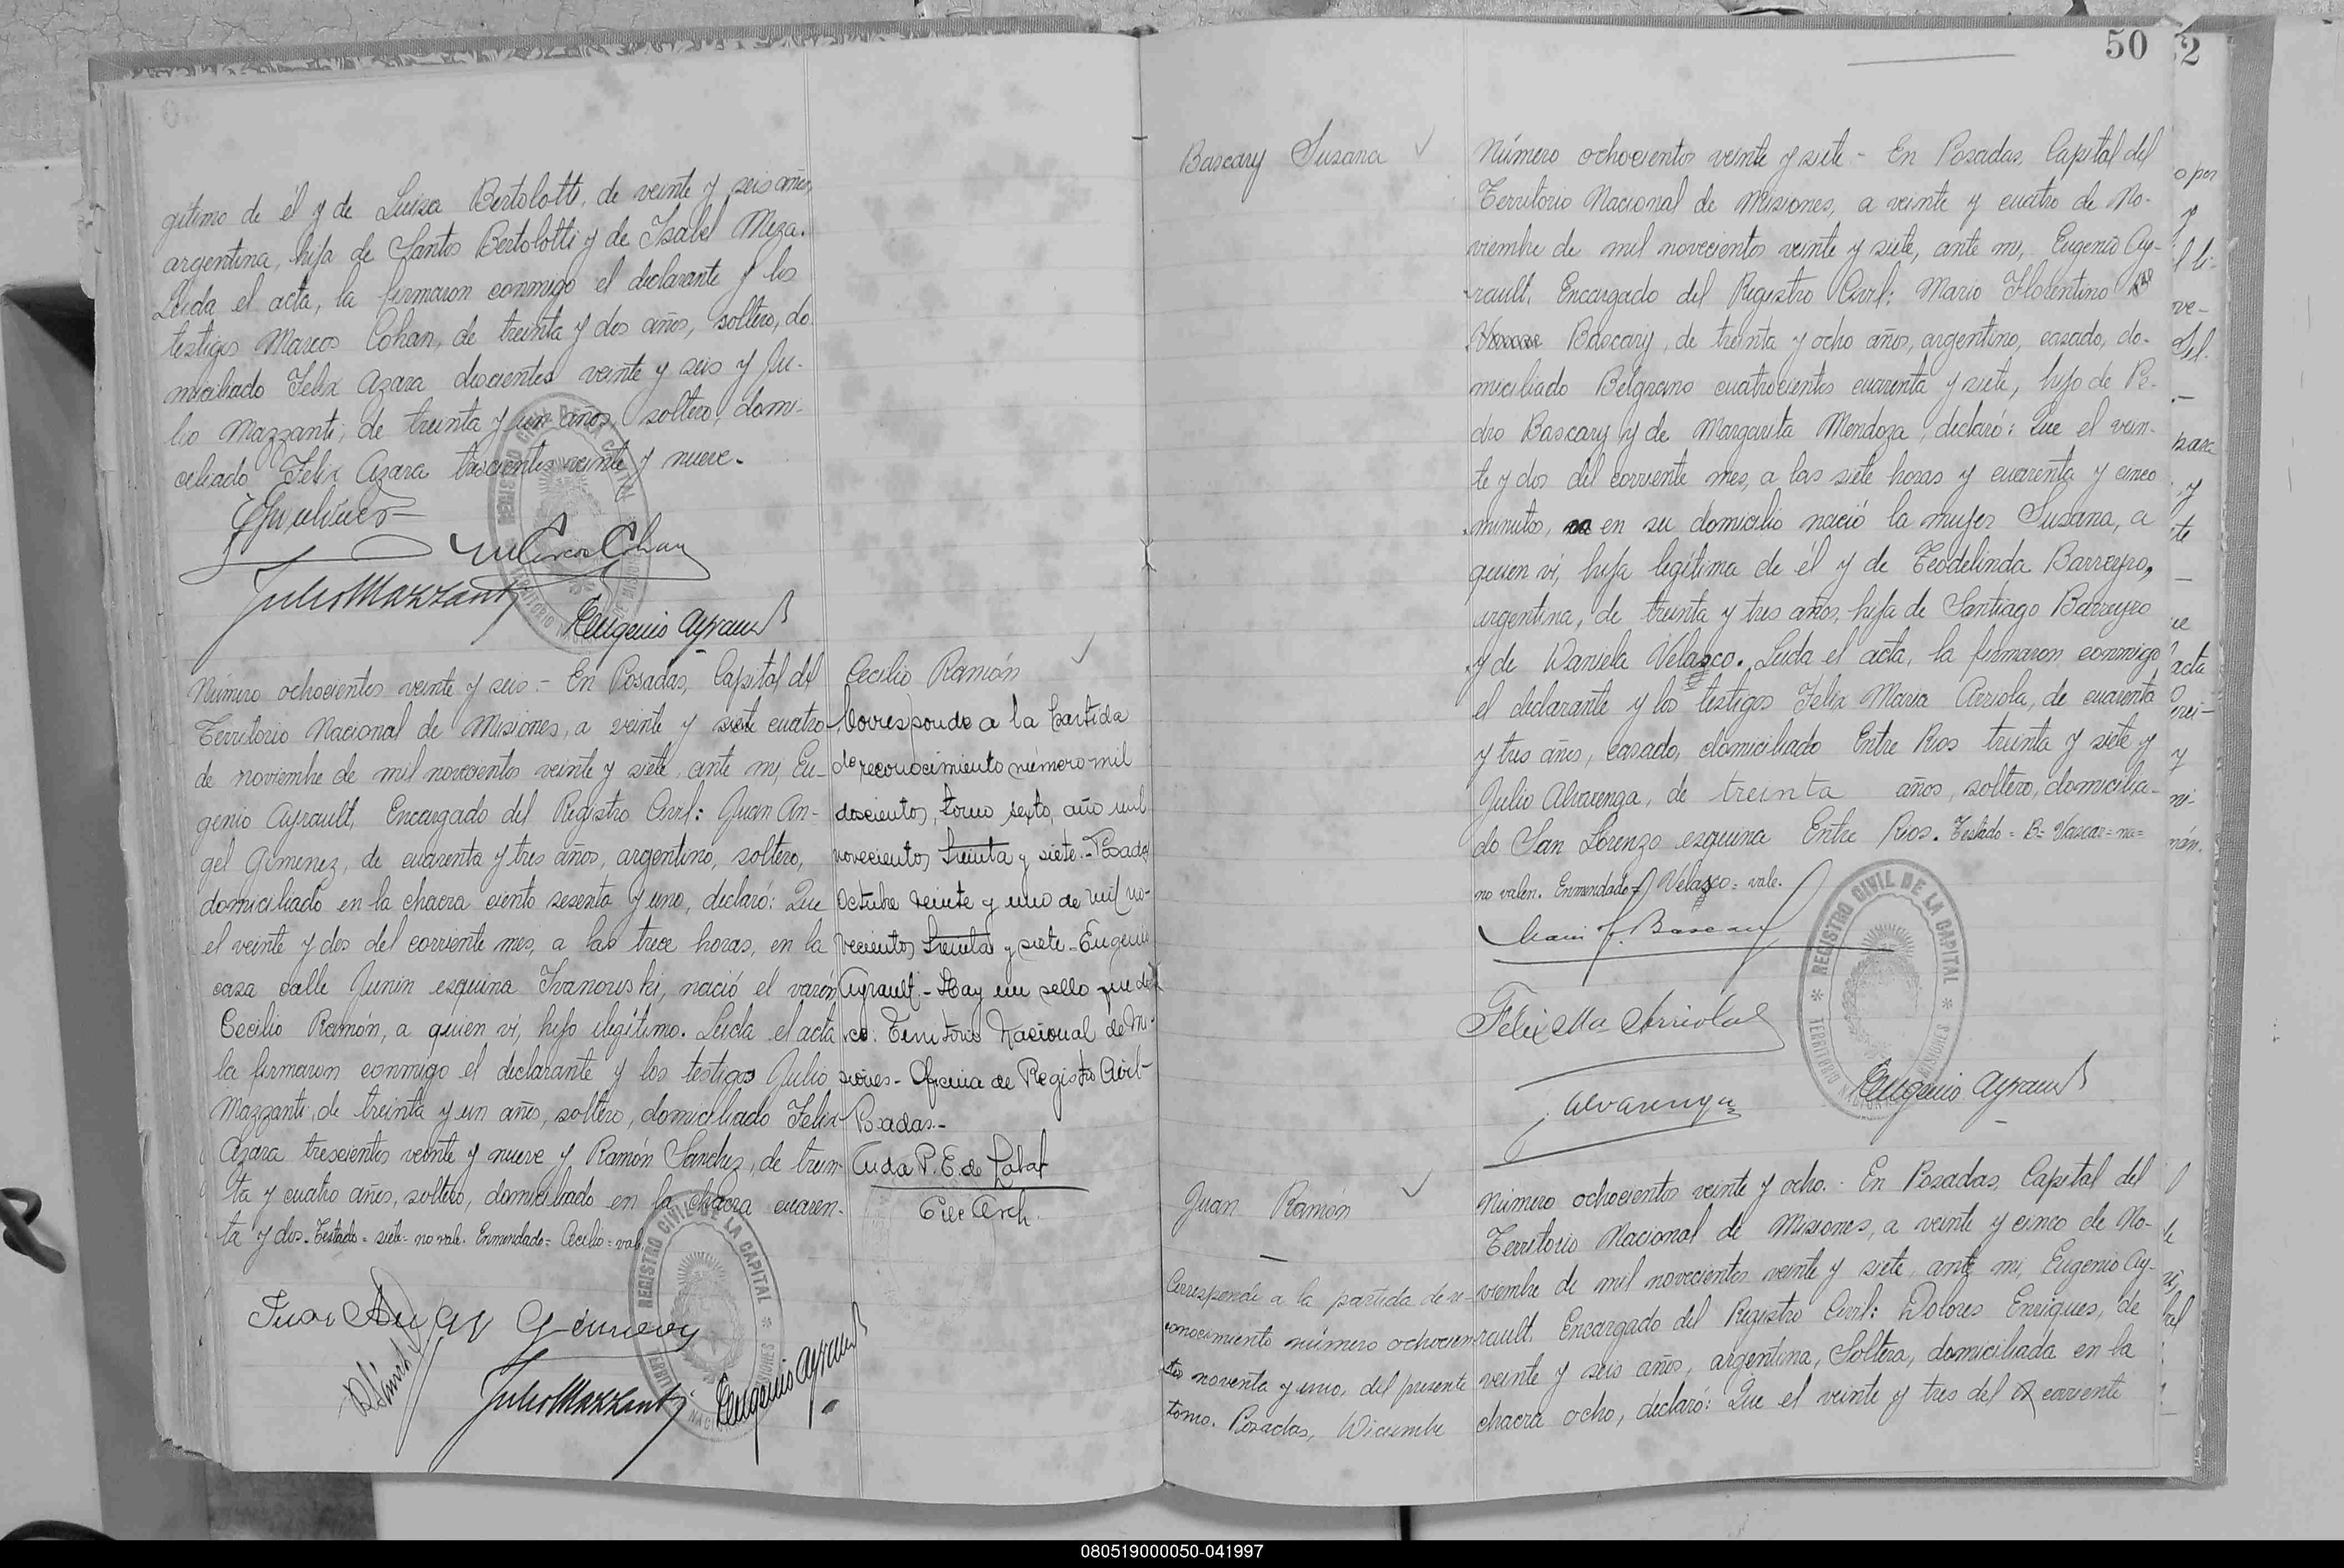 gitimo de él y de Luisa Bertolotti, de veinte y seis años,
argentina, hija de Santos Bertolotti y de Isabel Meza.
Leida el acta, la firmaron conmigo el declarante y los
testigos Marcos Cohan, de treinta y dos años, soltero, do-
miciliado Felix Azara doscientos veinte y seis y Ju-
lio Mazzanti, de treinta y un años, soltero, domi-
ciliado Felix Azara trescientos veinte y nueve.
Marcos Cohan
Julio Mazzanti
Eugenio Ayrault
REGISTRO CIVIL DE LA CAPITAL
TERRITORIO NACIONAL DE MISIONES
Número ochocientos veinte y seis.- En Posadas, Capital del
Territorio Nacional de Misiones, a veinte y siete cuatro
de noviembre de mil novecientos veinte y siete, ante mi, Eu-
genio Ayrault, Encargado del Registro Civil: Juan An-
gel Gimenez, de cuarenta y tres años, argentino, soltero,
domiciliado en la chacra ciento sesenta y uno, declaró: Que
el veinte y dos del corriente mes, a las trece horas, en la
casa calle Junin esquina Ivanowski, nació el varón
Cecilio Ramón, a quien ví, hijo ilegítimo. Leida el acta
la firmaron conmigo el declarante y los testigos Julio
Mazzanti, de treinta y un años, soltero, domiciliado Felix
Azara trescientos veinte y nueve y Ramón Sanchez, de trein-
ta y cuatro años, soltero, domiciliado en la chacra cuaren-
ta y dos. Testado= siete= no vale. Enmendado= Cecilio= vale.
Juan Angel Gimenez
R Sanchez
Julio Mazzanti
Eugenio Ayrault
REGISTRO CIVIL DE LA CAPITAL
TERRITORIO NACIONAL DE MISIONES
Cecilio Ramón
Corresponde a la partida
de reconocimiento número mil
doscientos, tomo sexto, año mil
novecientos treinta y siete.- Posadas
Octubre veinte y uno de mil no-
vecientos treinta y siete- Eugenio
Ayrault.- Hay un sello que di-
ce: Territorio Nacional de Mi-
siones- Oficina de Registro Civil-
Posadas.-
Aida P. E. de Labat
50
2
Bascary Susana
Número ochocientos veinte y siete.- En Posadas, Capital del
Territorio Nacional de Misiones, a veinte y cuatro de No-
viembre de mil novecientos veinte y siete, ante mi, Eugenio Ay-
rault, Encargado del Registro Civil: Mario Florentino
Bascary, de treinta y ocho años, argentino, casado, do-
miciliado Belgrano cuatrocientos cuarenta y siete, hijo de Pe-
dro Bascary y de Margarita Mendoza, declaró: Que el vein-
te y dos del corriente mes, a las siete horas y cuarenta y cinco
minutos, en su domicilio nació la mujer Susana, a
quien ví, hija legítima de él y de Teodelinda Barreyro,
argentina, de treinta y tres años, hija de Santiago Barreyro
y de Daniela Velazco. Leida el acta, la firmaron conmigo
el declarante y los testigos Felix Maria Arriola, de cuarenta
y tres años, casado, domiciliado Entre Rios treinta y siete y
Julio Alvarenga, de treinta años, soltero, domicilia-
do San Lorenzo esquina Entre Rios. Testado= B= Vascar= na=
no valen. Enmendado= Velazco= vale.
Mario F. Bascary
Felix Ma Arriola
J. Alvarenga
Eugenio Ayrault
REGISTRO CIVIL DE LA CAPITAL
TERRITORIO NACIONAL DE MISIONES
Juan Ramón
Corresponde a la partida de re-
conocimiento número ochocien-
tos noventa y uno, del presente
tomo. Posadas, Diciembre
Número ochocientos veinte y ocho.- En Posadas, Capital del
Territorio Nacional de Misiones, a veinte y cinco de No-
viembre de mil novecientos veinte y siete, ante mi, Eugenio Ay-
rault, Encargado del Registro Civil: Dolores Enriques, de
veinte y seis años, argentina, Soltera, domiciliada en la
chacra ocho, declaró: Que el veinte y tres del corriente
080519000050-041997